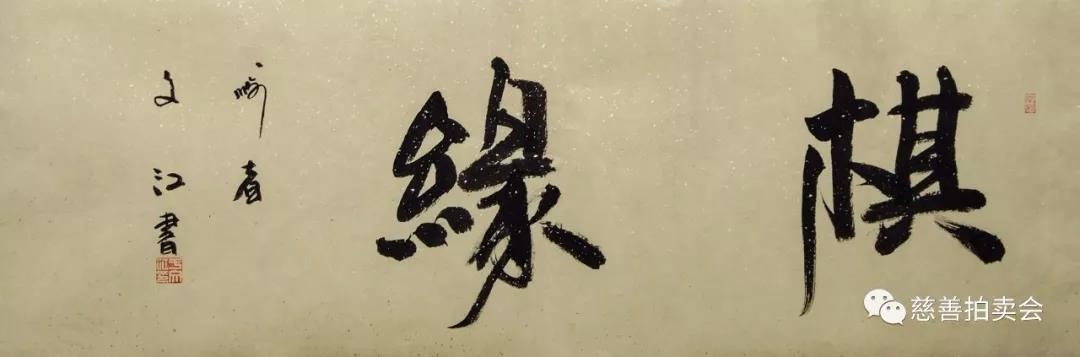 棋緣
文江書
慈善拍卖会